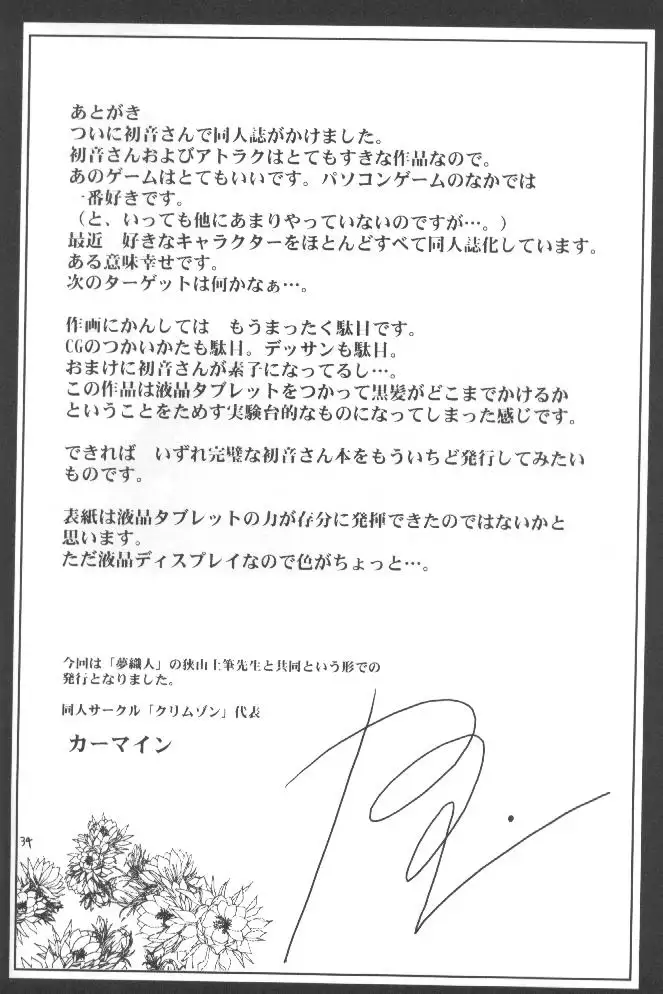 あとがき
ついに初音さんで同人誌がかけました。
初音さんおよびアトラクはとてもすきな作品なので。
あのゲームはとてもいいです。パソコンゲームのなかでは
一番好きです。
(と、いっても他にあまりやっていないのですが…。)
最近　好きなキャラクターをほとんどすべて同人誌化しています。
ある意味幸せです。
次のターゲットは何かなぁ…。
作画にかんしては　もうまったく駄目です。
CGのつかいかたも駄目。デッサンも駄目。
おまけに初音さんが素子になってるし…。
この作品は液晶タブレットをつかって黒髪がどこまでかけるか
ということをためす実験台的なものになってしまった感じです。
できれば　いずれ完璧な初音さん本をもういちど発行してみたい
ものです。
表紙は液晶タブレットの力が存分に発揮できたのではないかと
思います。
ただ液晶ディスプレイなので色がちょっと…。
今回は「夢織人」の狭山土筆先生と共同という形での
発行となりました。
同人サークル「クリムゾン」代表
カーマイン
34